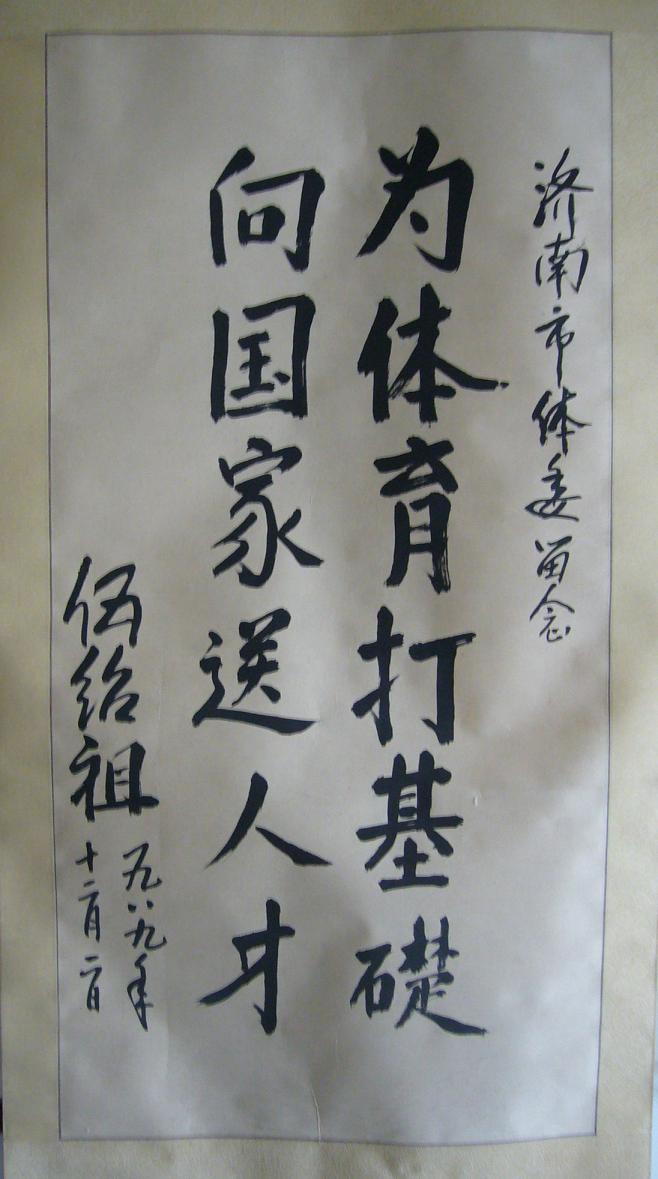 济南市体委留念
为体育打基礎
向国家送人才
伍绍祖
一九八九年
十二月二日